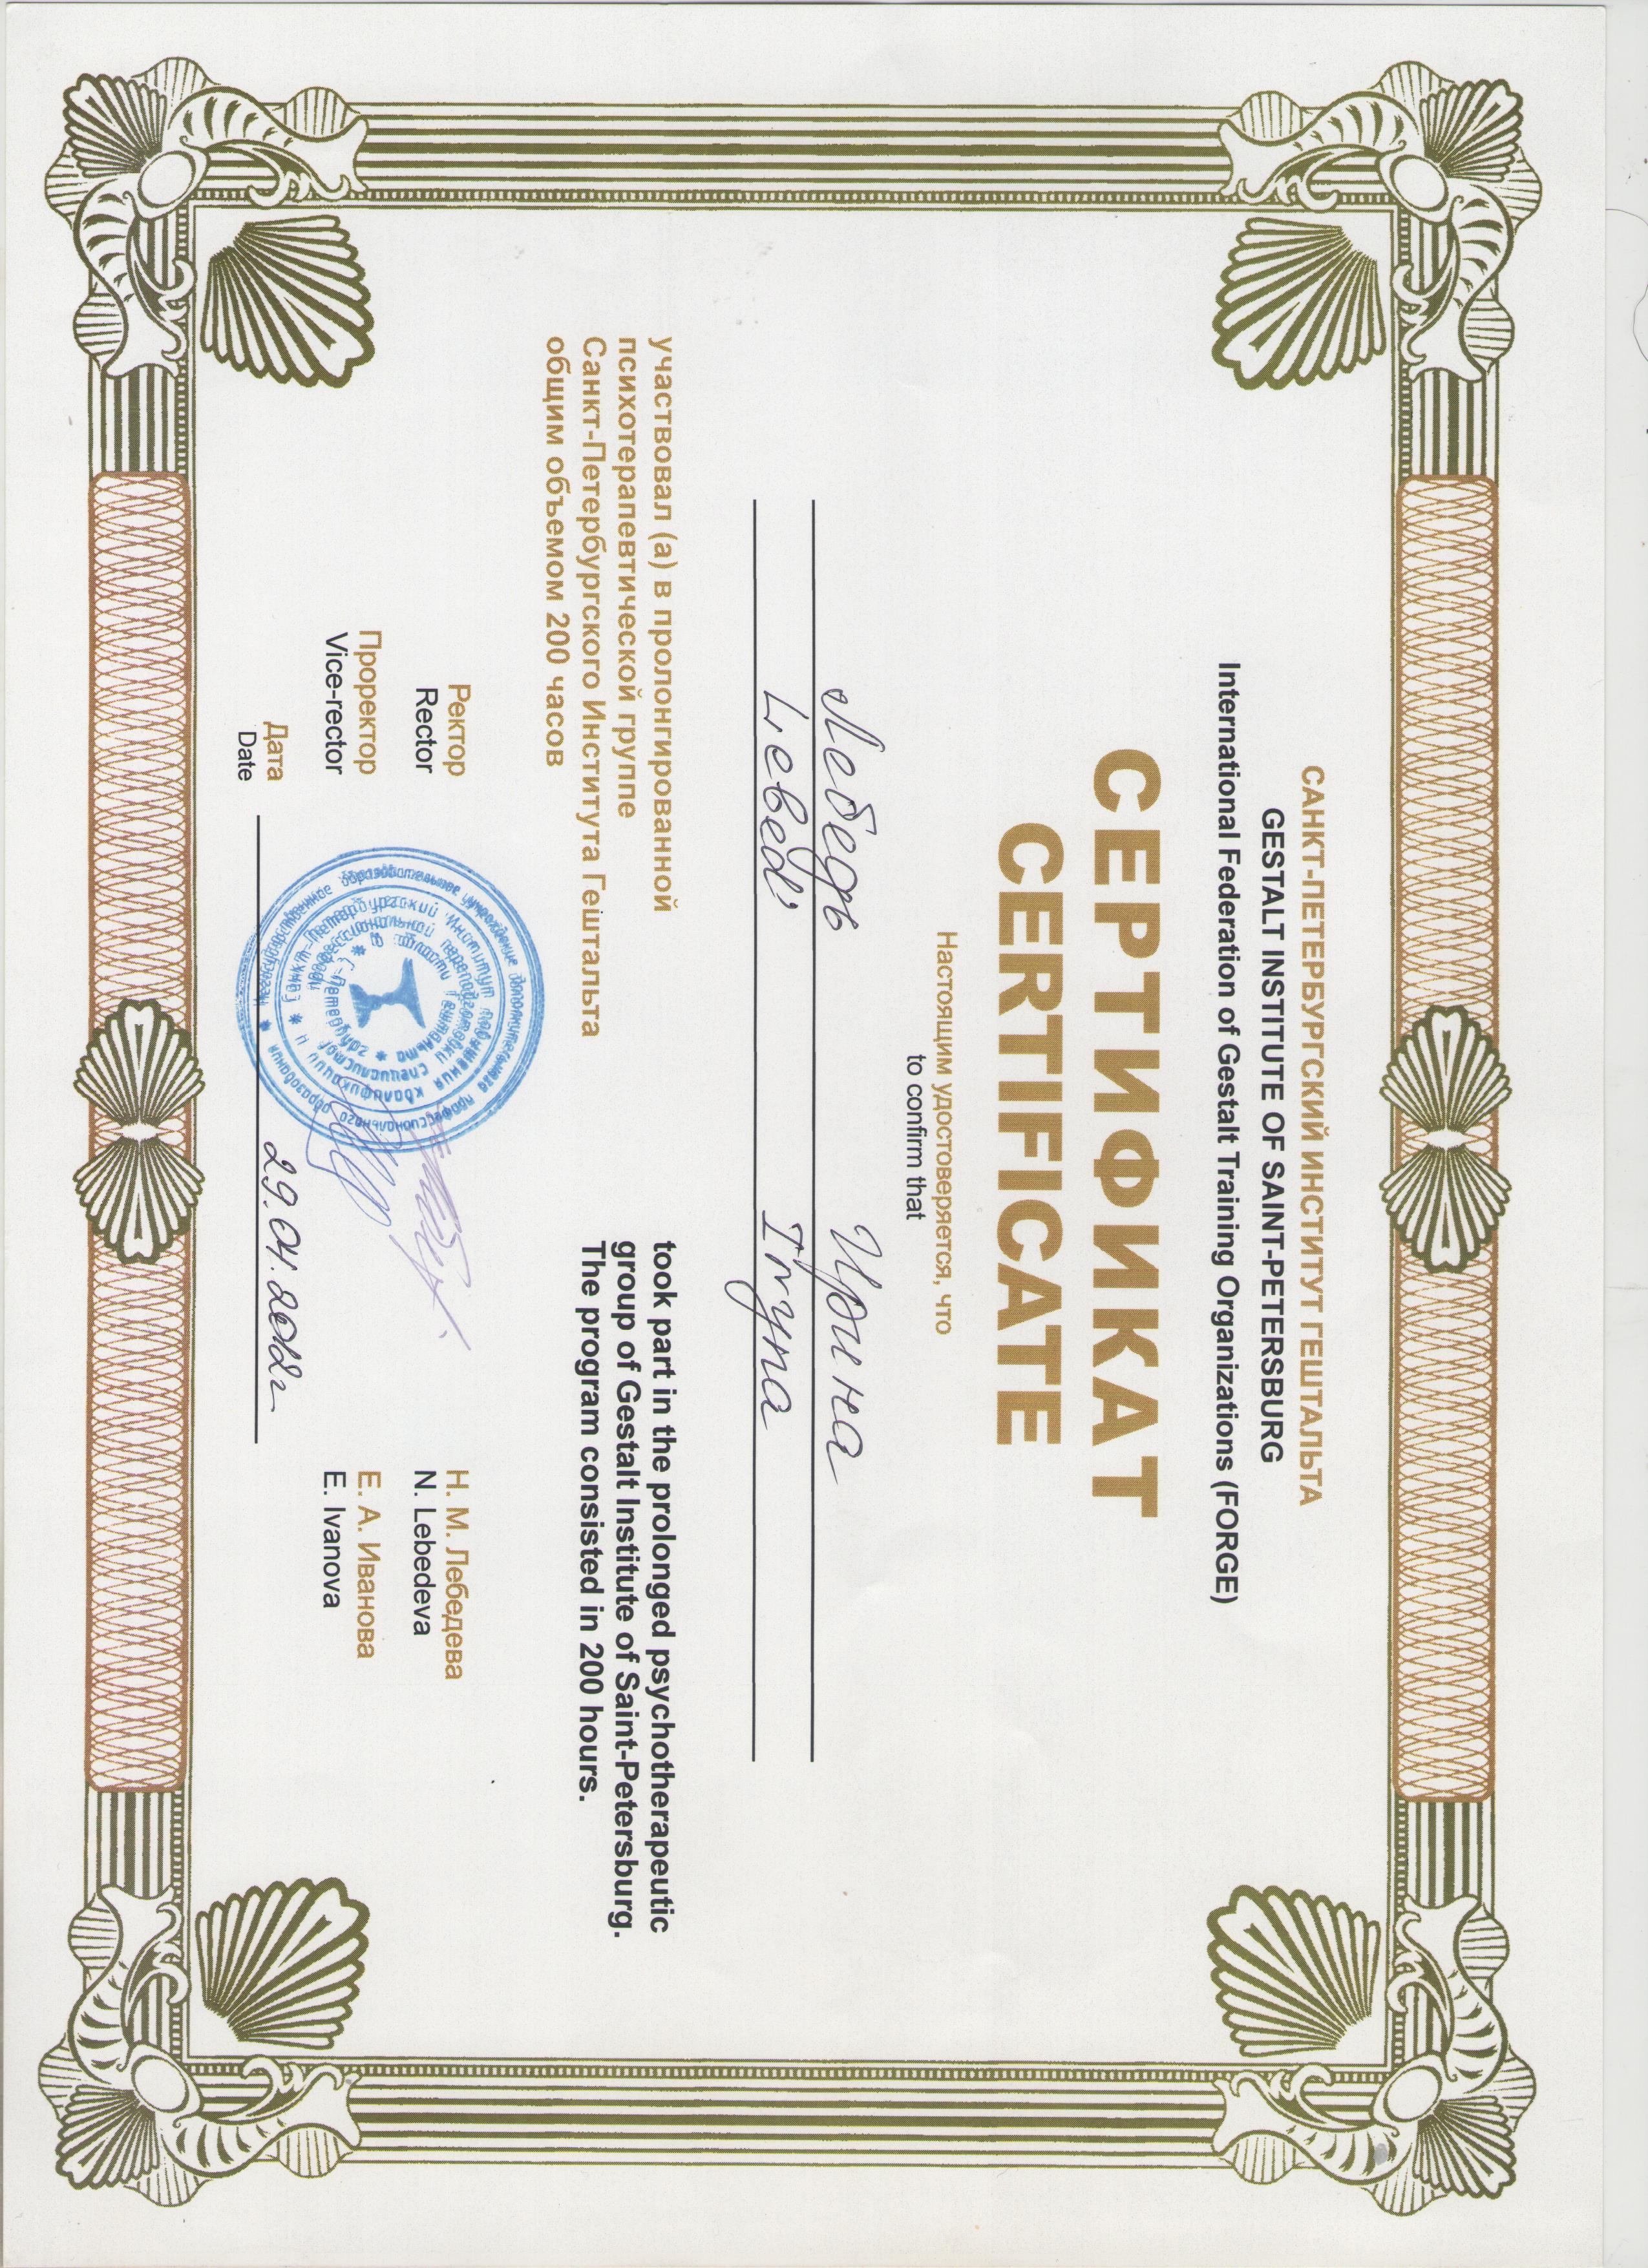 САНКТ-ПЕТЕРБУРГСКИЙ ИНСТИТУТ ГЕШТАЛЬТА
GESTALT INSTITUTE OF SAINT-PETERSBURG
International Federation of Gestalt Training Organizations (FORGE)
СЕРТИФИКАТ
CERTIFICATE
Настоящим удостоверяется, что
to confirm that
Лебедь Ирина
Lebed' Iryna
участвовал (а) в пролонгированной
психотерапевтической группе
Санкт-Петербургского Института Гештальта
общим объемом 200 часов
took part in the prolonged psychotherapeutic
group of Gestalt Institute of Saint-Petersburg.
The program consisted in 200 hours.
Ректор
Rector
Н. М. Лебедева
N. Lebedeva
Проректор
Vice-rector
Е. А. Иванова
E. Ivanova
Дата
Date
29.04.2012г
Негосударственное образовательное учреждение дополнительного профессионального образования
Санкт-Петербургский Институт повышения квалификации и
профессиональной переподготовки специалистов
в области Гештальта
С-Петербург